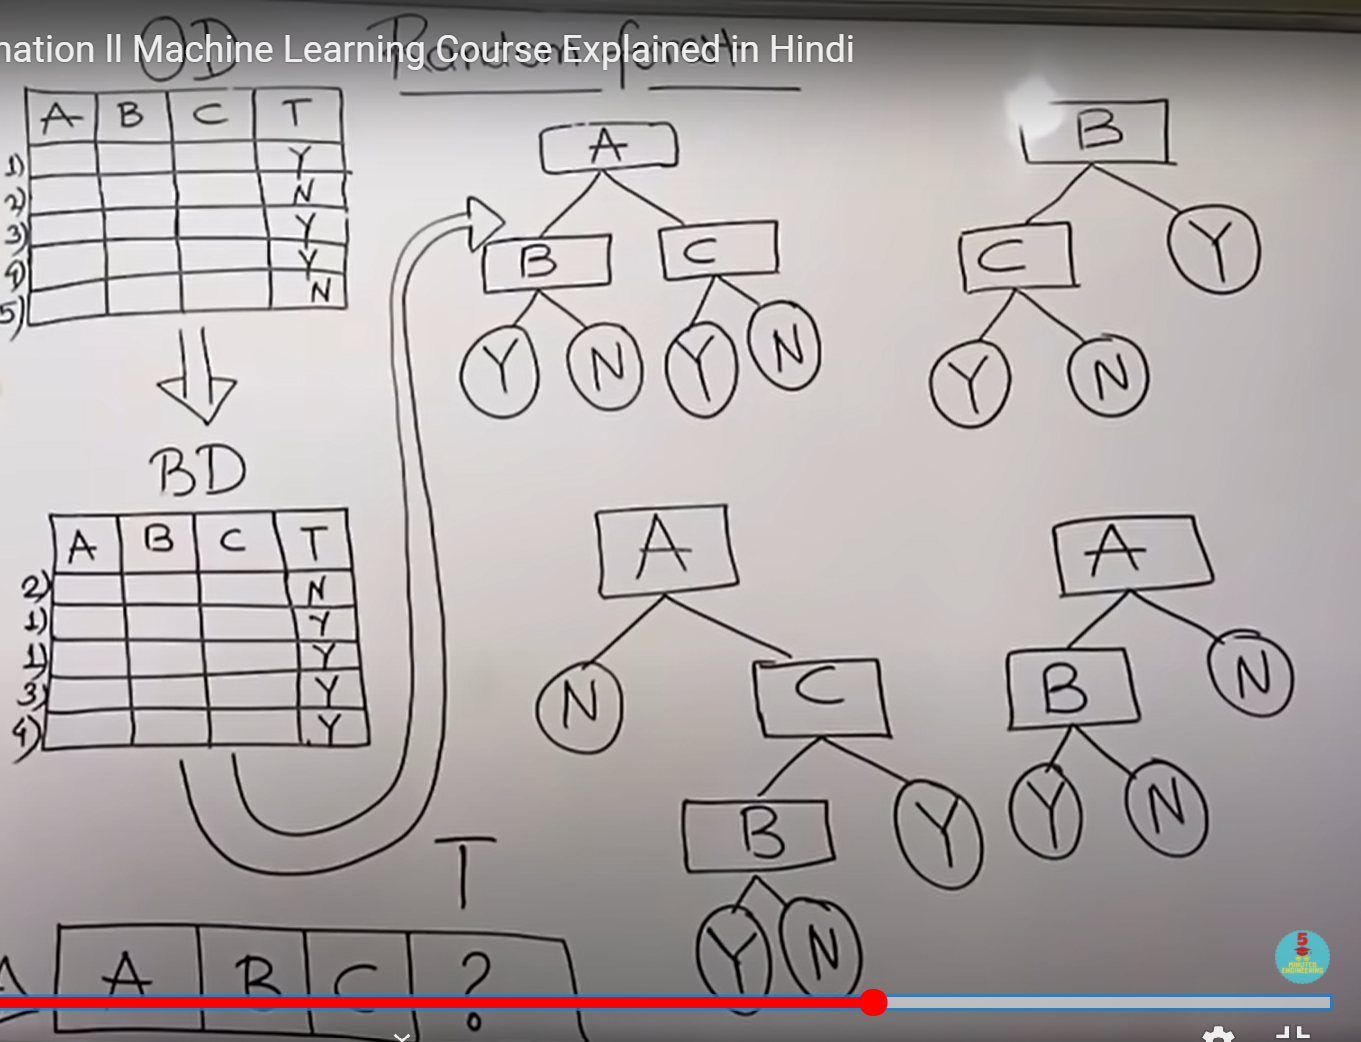 nation ll Machine Learning Course Explained in Hindi
OD
Random forest
A B C T
1) Y
2) N
3) Y
4) Y
5) N
BD
A B C T
2) N
1) Y
1) Y
3) Y
4) Y
A
B C
Y N Y N
B
C Y
Y N
A
N C
B Y
Y N
A
B N
Y N
T
A B C ?
5
MINUTES
ENGINEERING